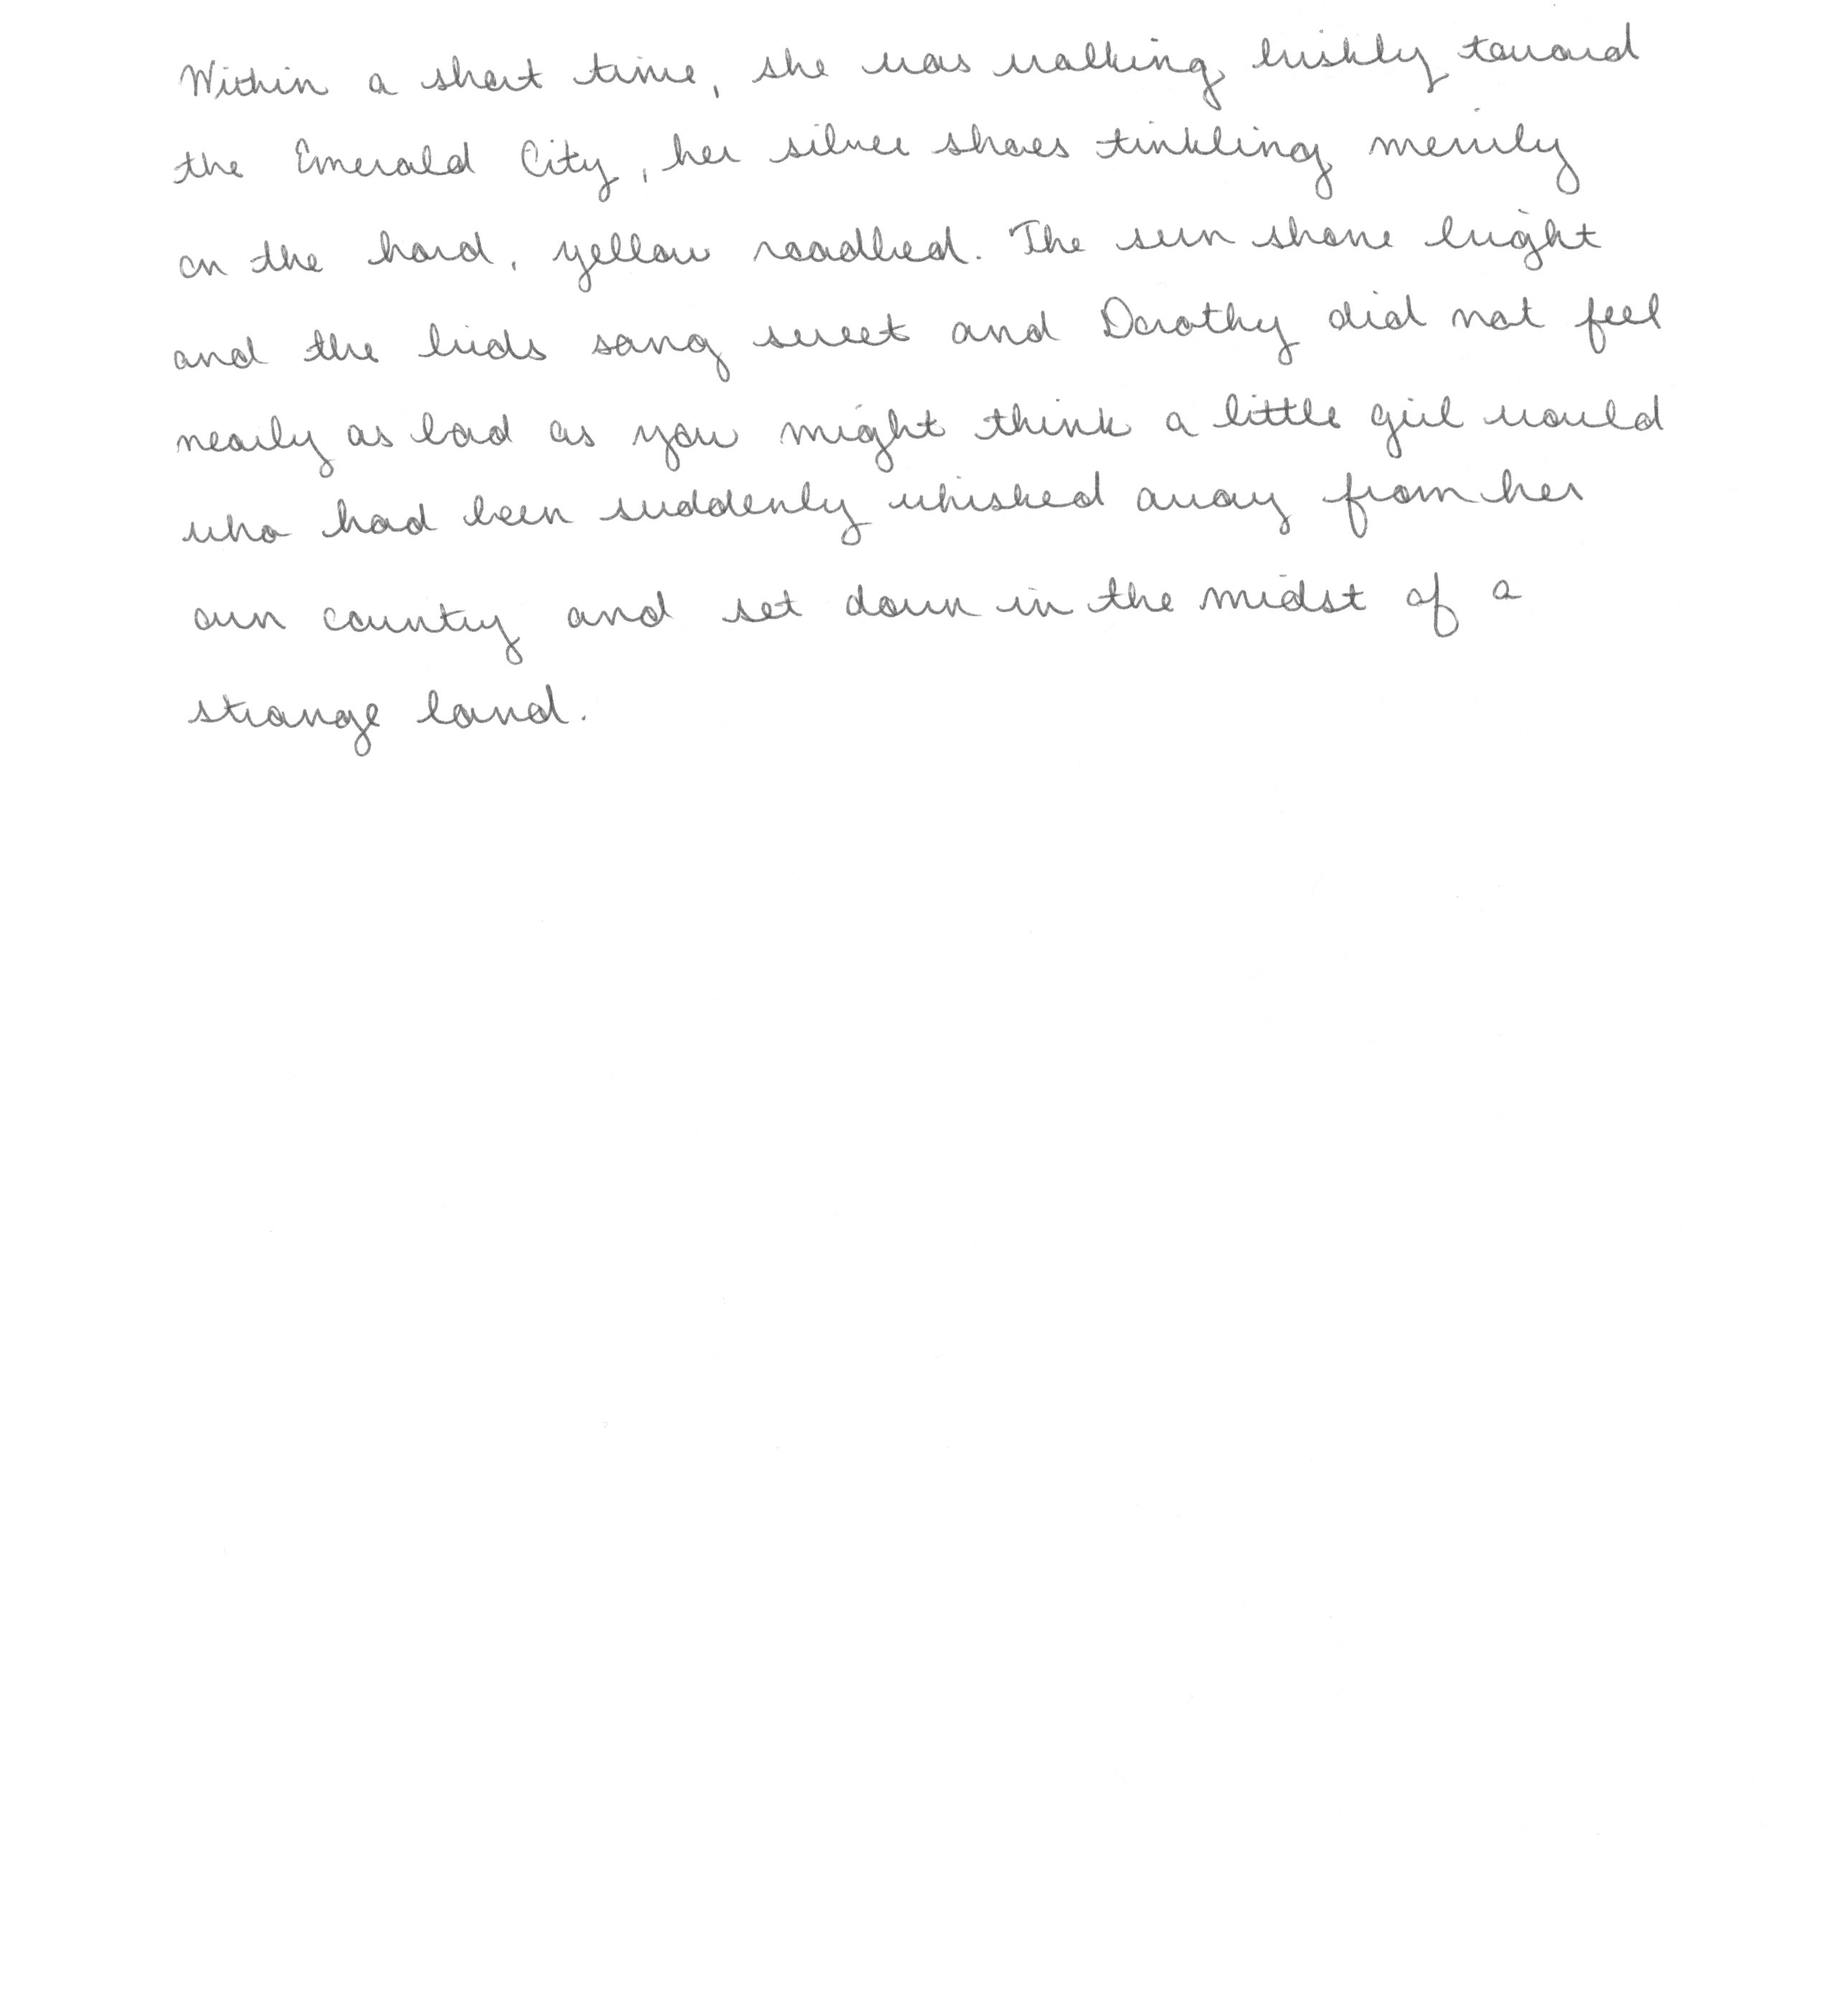 Within a short time, she was walking briskly toward
the Emerald City, her silver shoes tinkling merrily
on the hard, yellow roadbed. The sun shone bright
and the birds sang sweet and Dorothy did not feel
nearly as bad as you might think a little girl would
who had been suddenly whisked away from her
own country and set down in the midst of a
strange land.